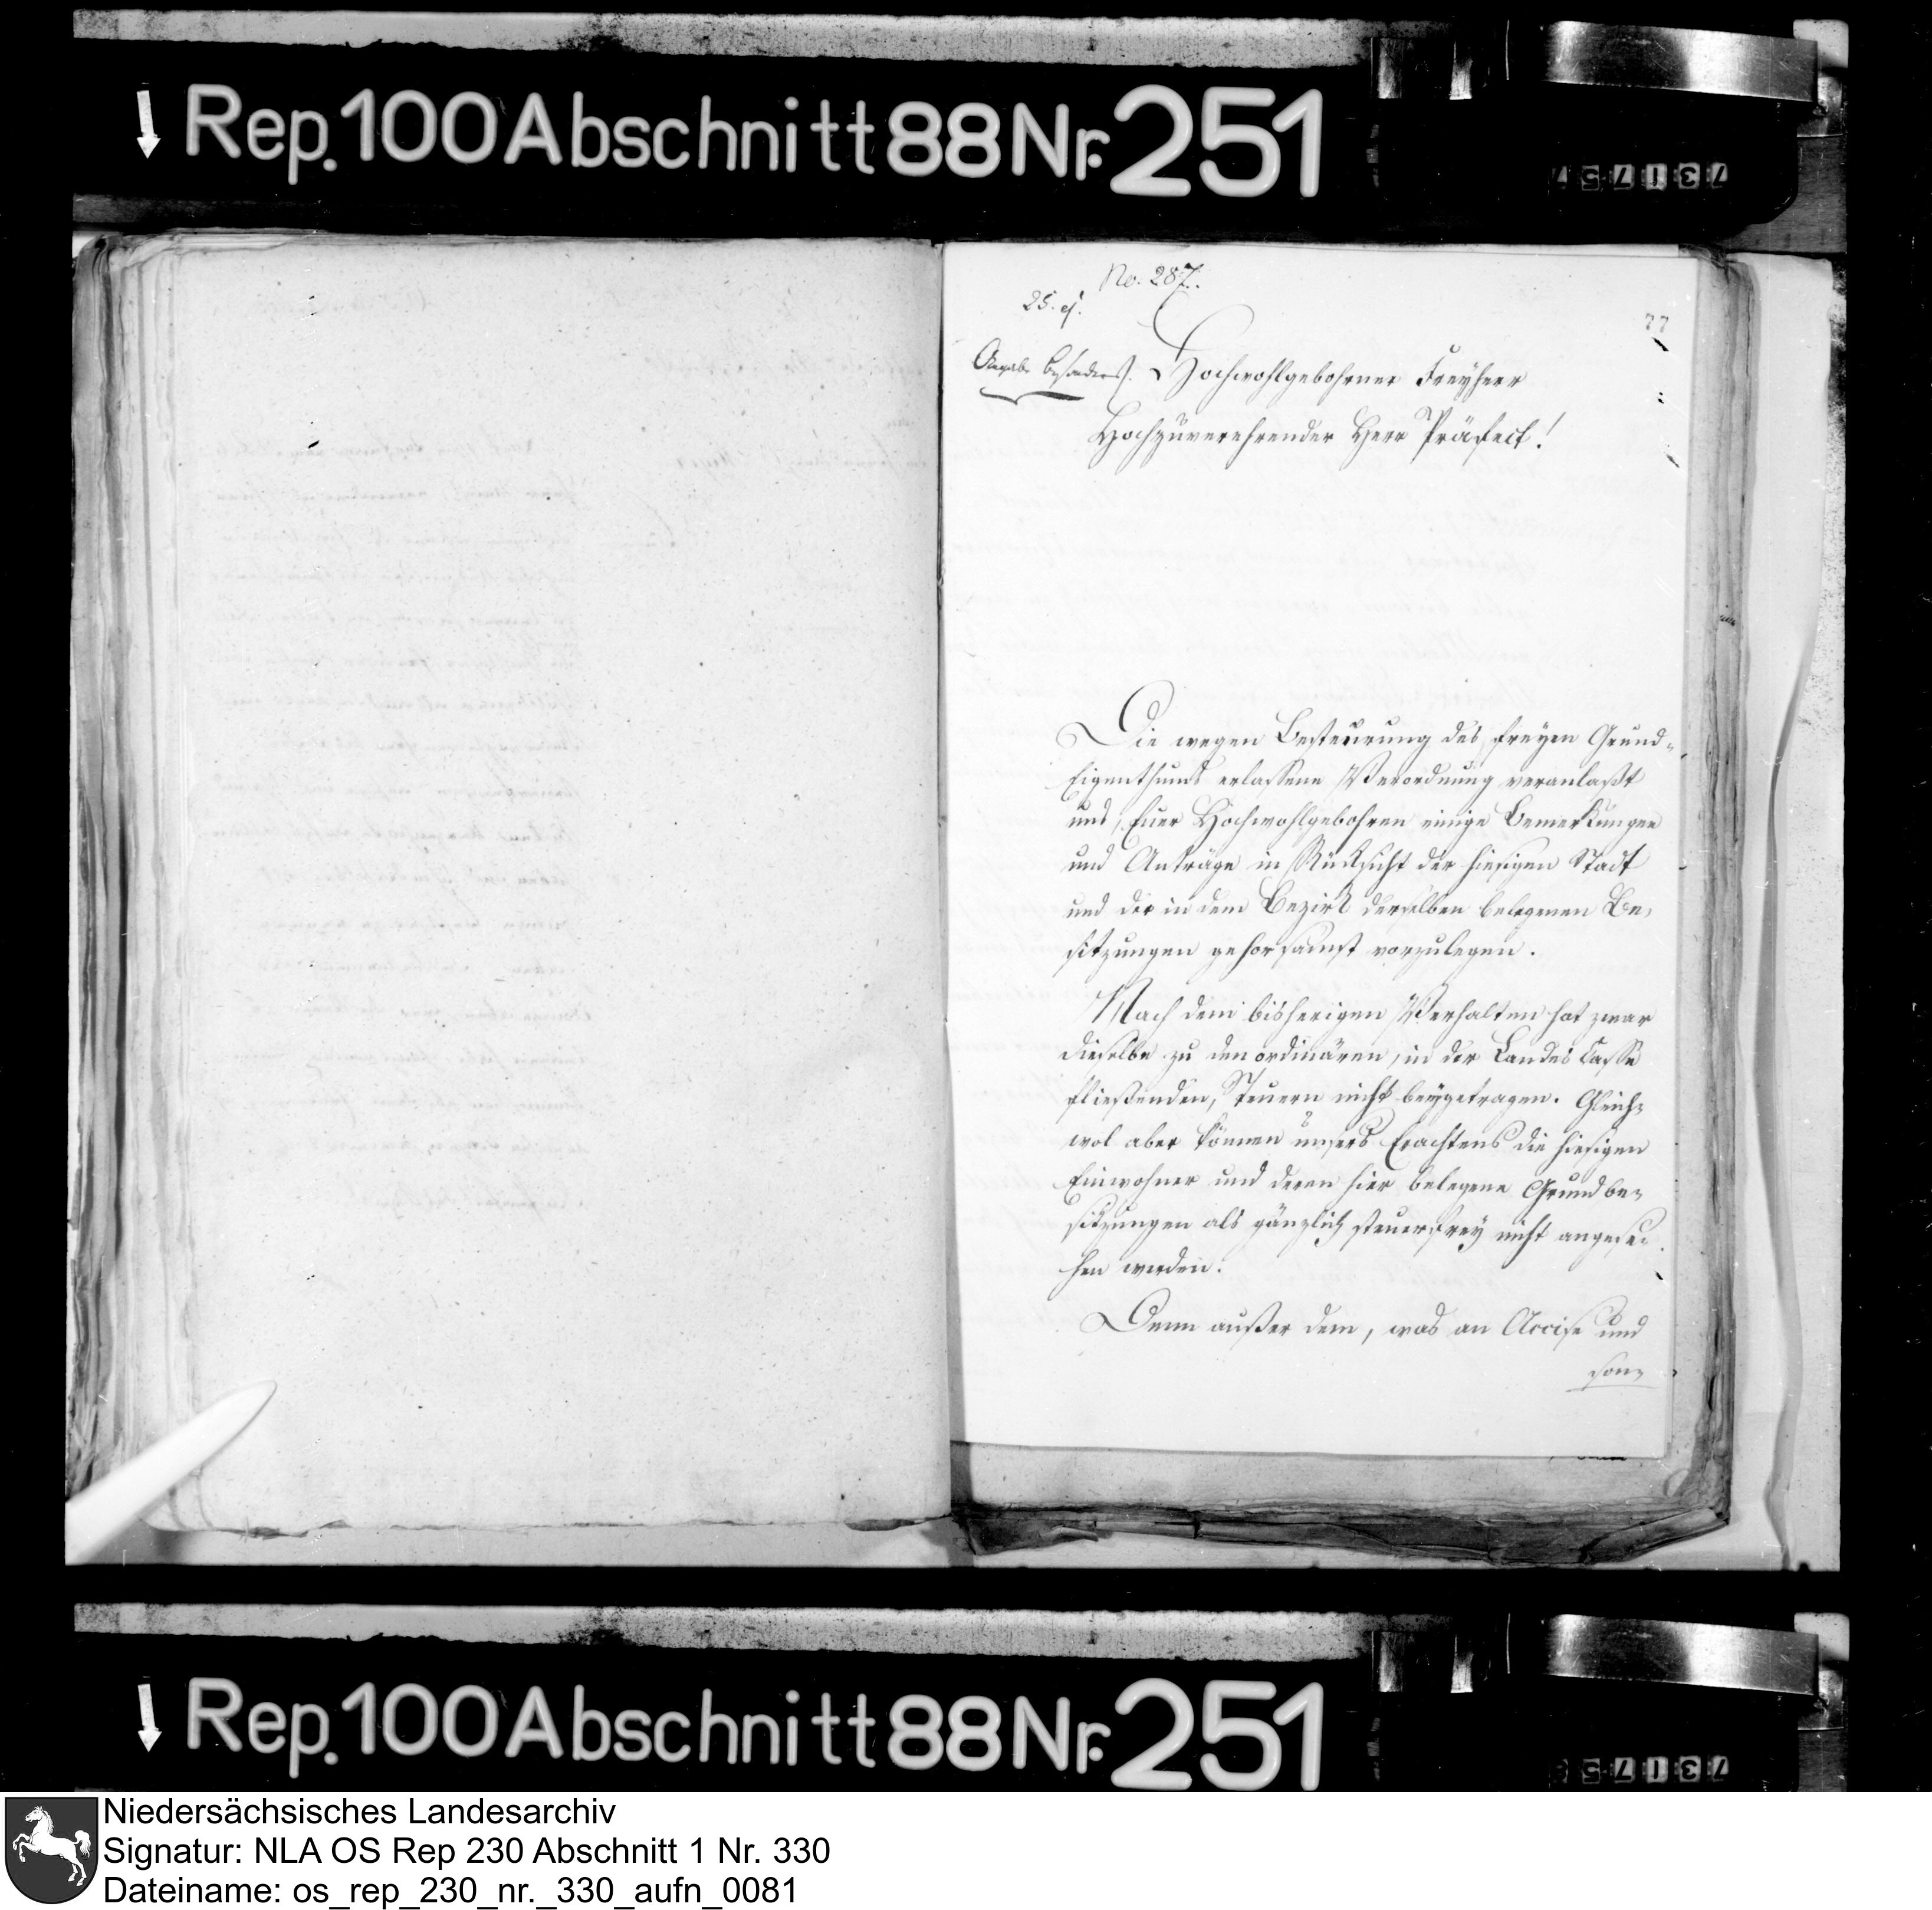 Rep. 100 Abschnitt 88 Nr. 251
No. 287.
25. ej.
77
Hochwohlgebohrner Freyherr
Hochzuverehrender Herr Präfect!
Die wegen Besteuerung des freyen Grund-
Eigenthums erlassene Verordnung veranlaßt
uns, Euer Hochwohlgebohren einige Bemerkungen
und Anträge in Rücksicht der hiesigen Stadt
und der in dem Bezirk derselben belegenen Be-
sitzungen gehorsamst vorzulegen.
Nach dem bisherigen Verhalten hat zwar
dieselbe zu den ordinären, in der Landes Casse
fließenden, Steuern nicht beygetragen. Gleich-
wol aber können unsers Erachtens die hiesigen
Einwohner und deren hier belegene Grundbe-
sitzungen als gänzlich steuerfrey nicht angese-
hen werden.
Denn außer dem, was an Accise und
son-
Rep. 100 Abschnitt 88 Nr. 251
Niedersächsisches Landesarchiv
Signatur: NLA OS Rep 230 Abschnitt 1 Nr. 330
Dateiname: os_rep_230_nr._330_aufn_0081